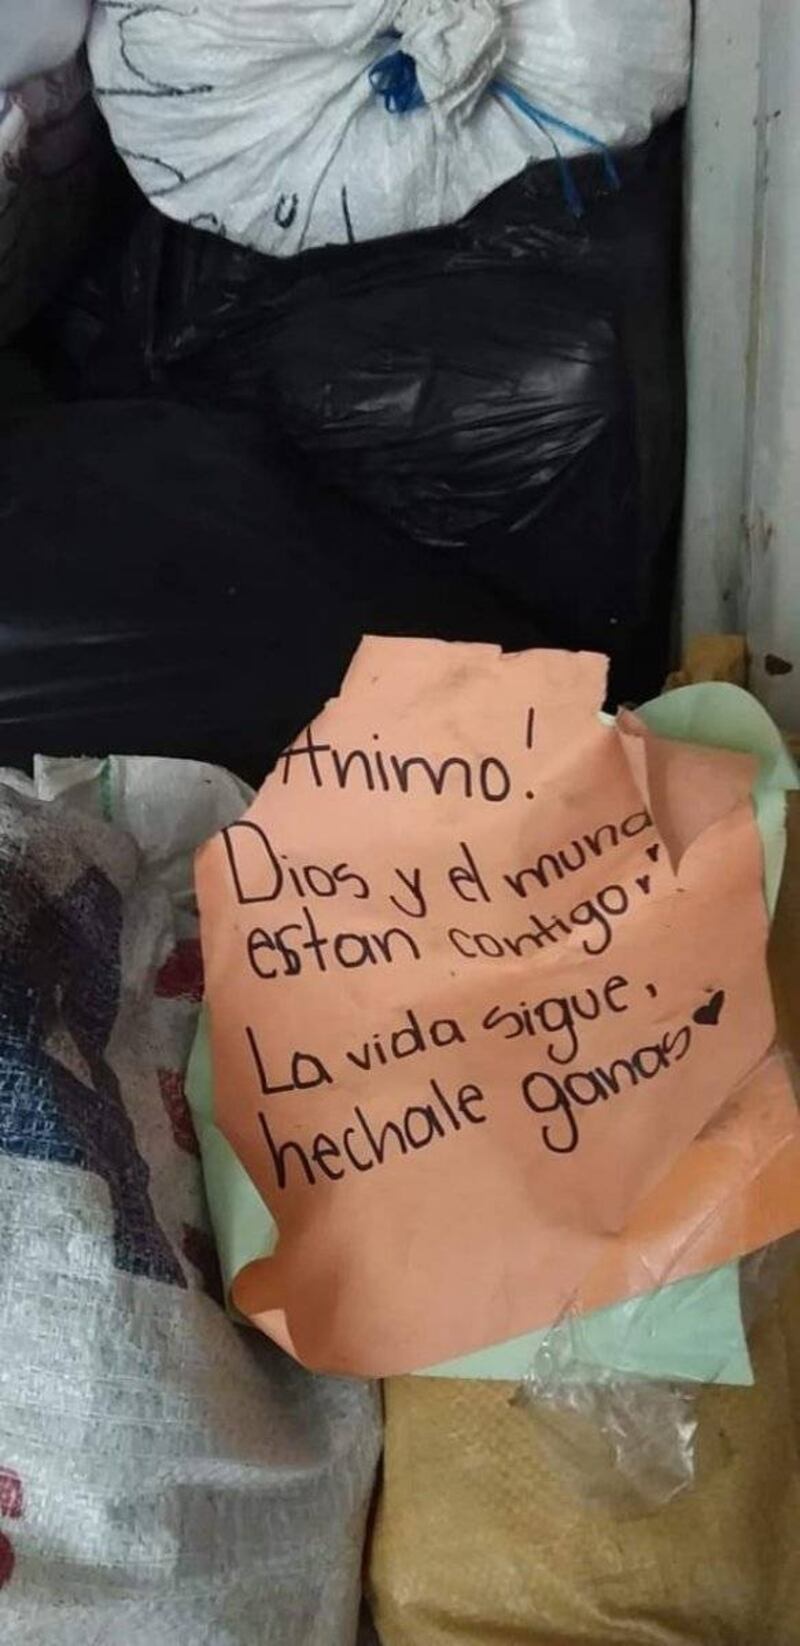 Animo!
Dios y el mund
estan contigo
La vida sigue,
hechale ganas